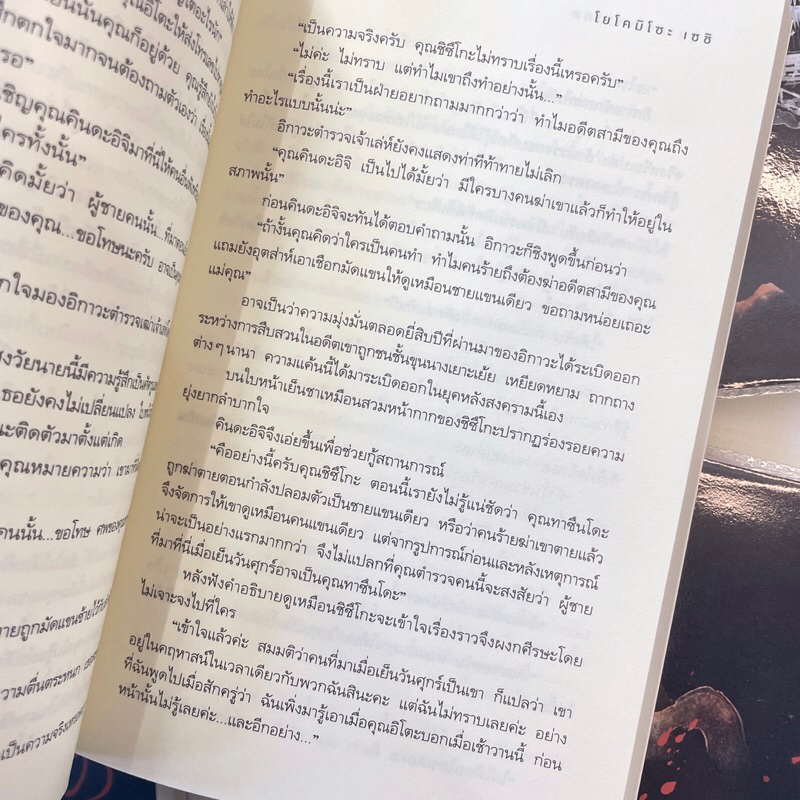 เตอะไรนั้น"
นั้นคุณก็อยู่ด้วย
ึกตกใจมากจนต้องถามตัวเองว่า
รอ"
เชิญคุณคินดะอิจิมาที่นี่ให้คน
ใครทั้งนั้น"
คิดมั้ยว่า ผู้ชายคนนั้น...
ของคุณ...ขอโทษนะครับ
กใจมองอิกาวะตำรวจเฒ่า
งวัยนายนี้มีความรู้สึกเป็น
ธอยังคงไม่เปลี่ยนแปลง
นะติดตัวมาตั้งแต่เกิด
คุณหมายความว่า เขามาที่นี่
คนนั้น...ขอโทษ ศพของคุณ
ายถูกมัดแขนซ้ายไว้
วามตื่นตระหนก
เป็นความจริงเหรอ
โยโคมิโซะ เซชิ
"เป็นความจริงครับ คุณชิซึโกะไม่ทราบเรื่องนี้เหรอครับ"
"ไม่ค่ะ ไม่ทราบ แต่ทำไมเขาถึงทำอย่างนั้น..."
"เรื่องนี้เราเป็นฝ่ายอยากถามมากกว่าว่า ทำไมอดีตสามีของคุณถึง
ทำอะไรแบบนั้นน่ะ"
อิกาวะตำรวจเจ้าเล่ห์ยังคงแสดงท่าทีท้าทายไม่เลิก
"คุณคินดะอิจิ เป็นไปได้มั้ยว่า มีใครบางคนฆ่าเขาแล้วก็ทำให้อยู่ใน
สภาพนั้น"
ก่อนคินดะอิจิจะทันได้ตอบคำถามนั้น อิกาวะก็ชิงพูดขึ้นก่อนว่า
"ถ้างั้นคุณคิดว่าใครเป็นคนทำ ทำไมคนร้ายถึงต้องฆ่าอดีตสามีของคุณ
แถมยังอุตส่าห์เอาเชือกมัดแขนให้ดูเหมือนชายแขนเดียว ขอถามหน่อยเถอะ
แม่คุณ"
อาจเป็นว่าความมุ่งมั่นตลอดยี่สิบปีที่ผ่านมาของอิกาวะได้ระเบิดออก
ระหว่างการสืบสวนในอดีตเขาถูกชนชั้นขุนนางเยาะเย้ย เหยียดหยาม ถากถาง
ต่างๆ นานา ความแค้นนี้ได้มาระเบิดออกในยุคหลังสงครามนี้เอง
บนใบหน้าเย็นชาเหมือนสวมหน้ากากของชิซึโกะปรากฏร่องรอยความ
ยุ่งยากลำบากใจ
คินดะอิจิจึงเอ่ยขึ้นเพื่อช่วยกู้สถานการณ์
"คืออย่างนี้ครับคุณชิซึโกะ ตอนนี้เรายังไม่รู้แน่ชัดว่า คุณทาซึนโดะ
ถูกฆ่าตายตอนกำลังปลอมตัวเป็นชายแขนเดียว หรือว่าคนร้ายฆ่าเขาตายแล้ว
จึงจัดการให้เขาดูเหมือนคนแขนเดียว แต่จากรูปการณ์ก่อนและหลังเหตุการณ์
น่าจะเป็นอย่างแรกมากกว่า จึงไม่แปลกที่คุณตำรวจคนนี้จะสงสัยว่า ผู้ชาย
ที่มาที่นี่เมื่อเย็นวันศุกร์อาจเป็นคุณทาซึนโดะ"
หลังฟังคำอธิบายดูเหมือนชิซึโกะจะเข้าใจเรื่องราวจึงผงกศีรษะโดย
ไม่เจาะจงไปที่ใคร
"เข้าใจแล้วค่ะ สมมติว่าคนที่มาเมื่อเย็นวันศุกร์เป็นเขา ก็แปลว่า เขา
อยู่ในคฤหาสน์ในเวลาเดียวกับพวกฉันสินะคะ แต่ฉันไม่ทราบเลยค่ะ อย่าง
ที่ฉันพูดไปเมื่อสักครู่ว่า ฉันเพิ่งมารู้เอาเมื่อคุณอิโตะบอกเมื่อเช้าวานนี้ ก่อน
หน้านั้นไม่รู้เลยค่ะ...และอีกอย่าง..."